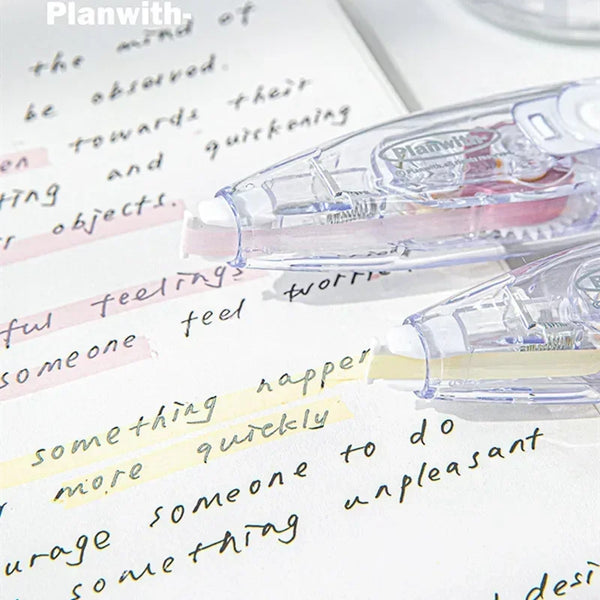 Planwith-
the mind of
be observed.
en towards their
ting and quickening
r objects.
ful feelings
someone feel worrie
something happen
more quickly
urage someone to do
something unpleasant
desi
Planwith